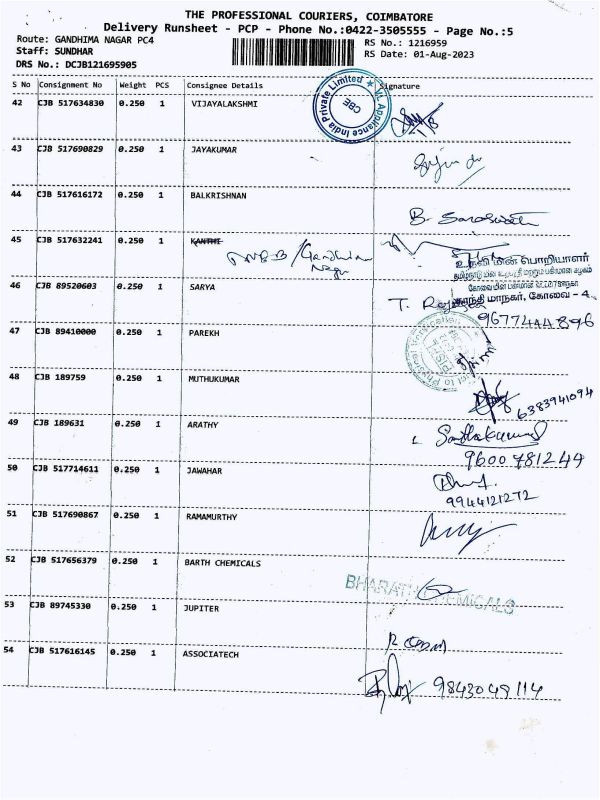 THE PROFESSIONAL COURIERS, COIMBATORE
Delivery Runsheet - PCP - Phone No.:0422-3505555 - Page No.:5
Route: GANDHIMA NAGAR PC4
RS No.: 1216959
Staff: SUNDHAR
RS Date: 01-Aug-2023
DRS No.: DCJB121695905
S No Consignment No Weight PCS Consignee Details Signature
42 CJB 517634830 0.250 1 VIJAYALAKSHMI
VL Appliance India Private Limited CBE
43 CJB 517690829 0.250 1 JAYAKUMAR
44 CJB 517616172 0.250 1 BALKRISHNAN
B. Saraswathi
45 CJB 517632241 0.250 1 KANTHI
TNEB / Gandhima Nagar
உதவி மின் பொறியாளர்
காந்தி மாநகர், கோவை - 4
46 CJB 89520603 0.250 1 SARYA
9677444896
47 CJB 89410000 0.250 1 PAREKH
48 CJB 189759 0.250 1 MUTHUKUMAR
6383941094
49 CJB 189631 0.250 1 ARATHY
9600781244
50 CJB 517714611 0.250 1 JAWAHAR
9944121272
51 CJB 517690867 0.250 1 RAMAMURTHY
52 CJB 517656379 0.250 1 BARTH CHEMICALS
BHARATH CHEMICALS
53 CJB 89745330 0.250 1 JUPITER
54 CJB 517616145 0.250 1 ASSOCIATECH
9843049114